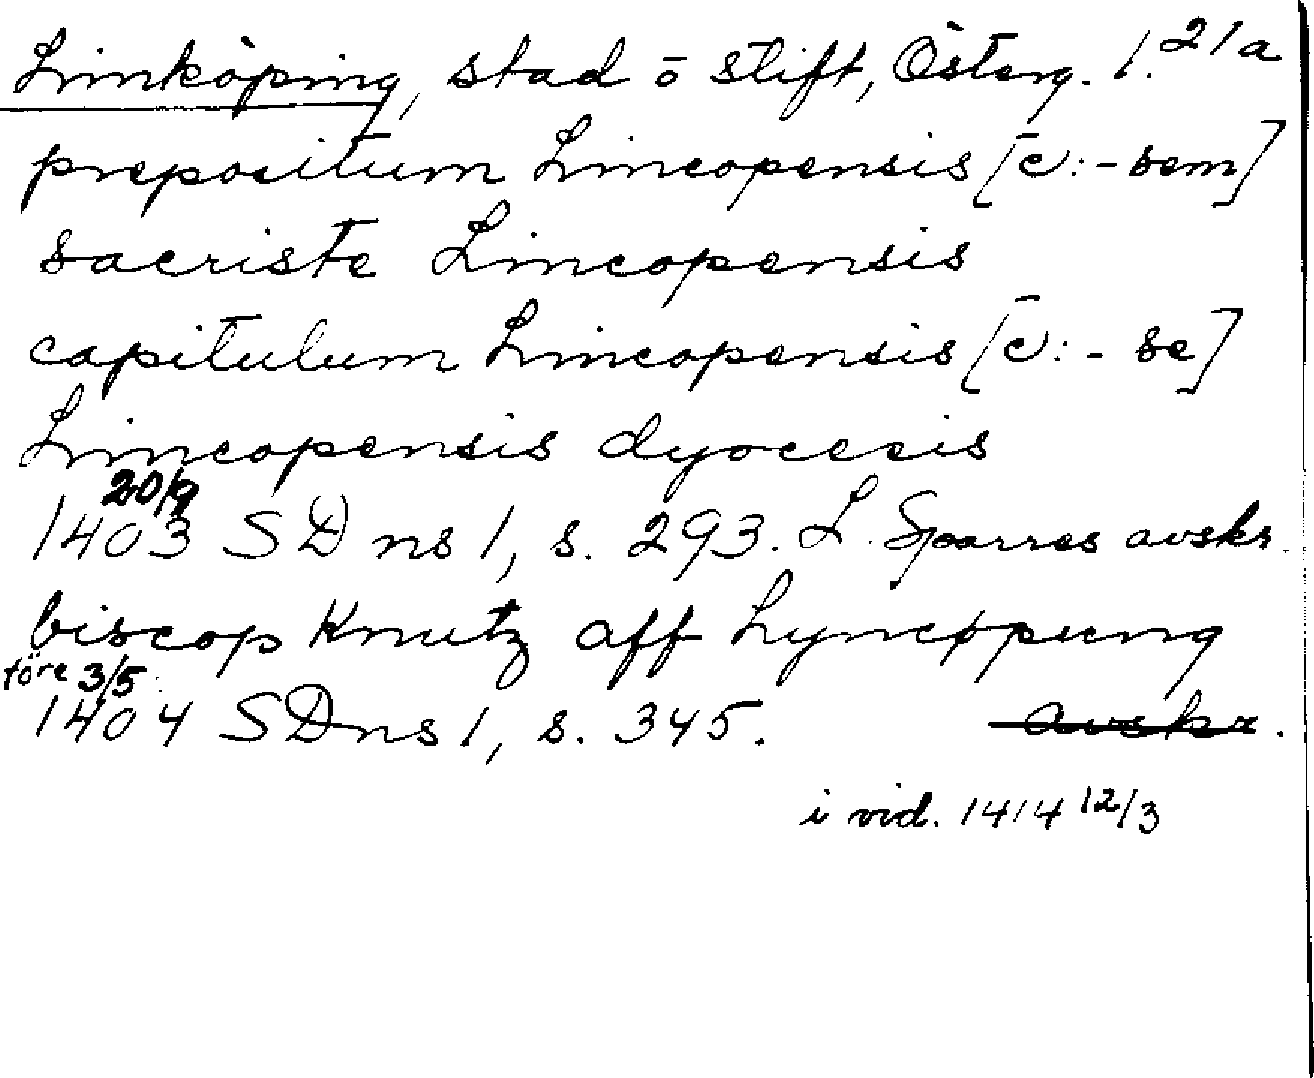 Linköping, stad ō stift, Österg. l. 21a
prepositum Lincopensis [ɔ: -sem]
sacriste Lincopensis
capitulum Lincopensis [ɔ: -se]
Lincopensis dyocesis
20/9
1403 SD ns 1, s. 293. L. Sparres avskr.
biscop Knutz aff Lyncøpung
före 3/5
1404 SD ns 1, s. 345. avskr.
i vid. 1414 12/3